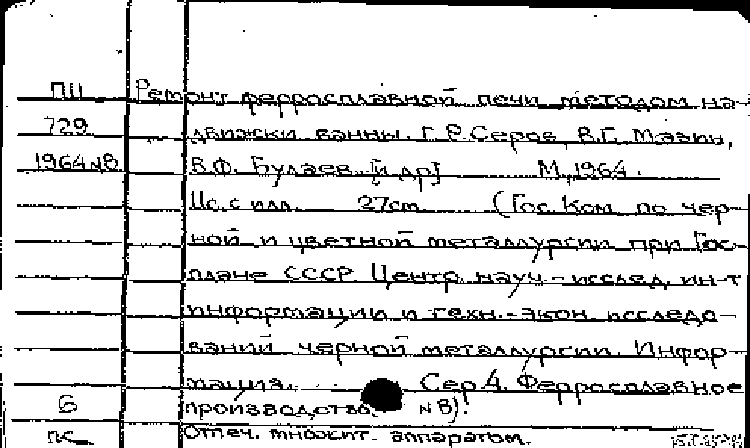 П11 Ремонт ферросплавной печи методом на-
729 движки ванны. Г.Р.Серов, В.Г. Мазин,
1964 №8 В.Ф. Булаев [и др] М., 1964.
11с. с илл. 27cm (Гос. Ком. по чер-
ной и цветной металлургии при Гос-
плане СССР Центр. науч-исслед. ин-т
информации и техн.-экон. исследо-
ваний черной металлургии. Инфор-
мация. Сер 4. Ферросплавное
Б производство, №8).
Отпеч. множит. аппаратом.